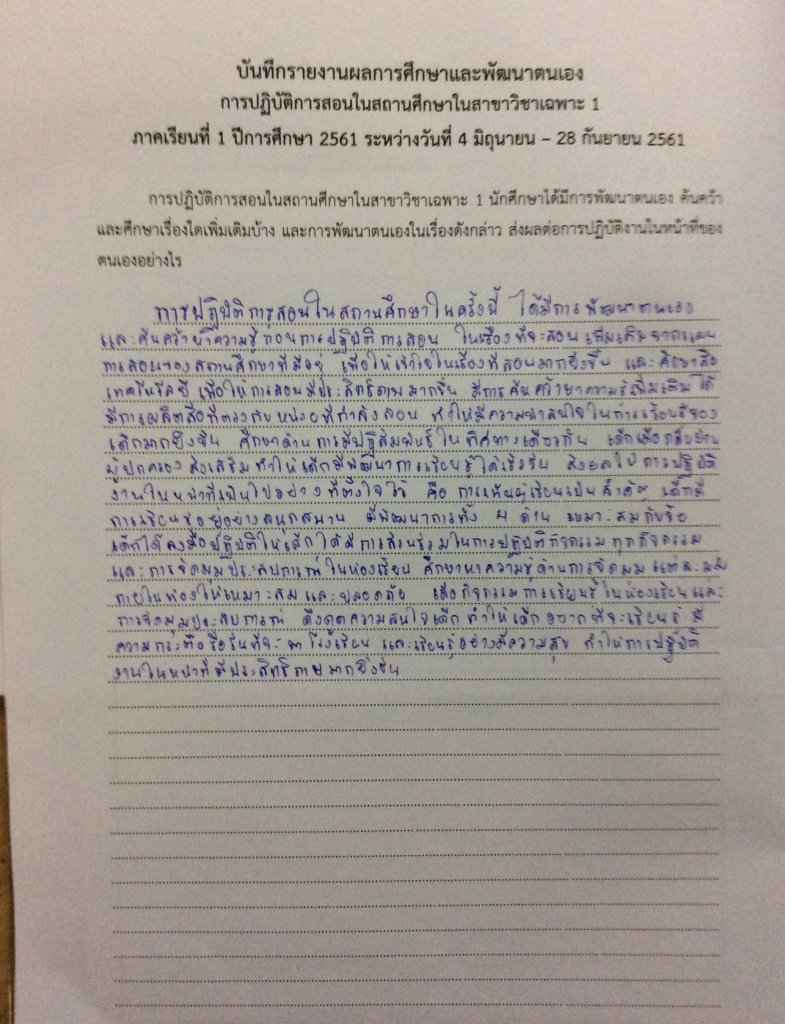 บันทึกรายงานผลการศึกษาและพัฒนาตนเอง
การปฏิบัติการสอนในสถานศึกษาในสาขาวิชาเฉพาะ 1
ภาคเรียนที่ 1 ปีการศึกษา 2561 ระหว่างวันที่ 4 มิถุนายน – 28 กันยายน 2561
การปฏิบัติการสอนในสถานศึกษาในสาขาวิชาเฉพาะ 1 นักศึกษาได้มีการพัฒนาตนเอง ค้นคว้า
และศึกษาเรื่องใดเพิ่มเติมบ้าง และการพัฒนาตนเองในเรื่องดังกล่าว ส่งผลต่อการปฏิบัติงานในหน้าที่ของ
ตนเองอย่างไร
การปฏิบัติการสอนในสถานศึกษาในครั้งนี้ ได้มีการพัฒนาตนเอง
และค้นคว้าหาความรู้ก่อนการปฏิบัติการสอน ในเรื่องที่จะสอนเพิ่มเติมจากแผน
การสอนของสถานศึกษาที่มีอยู่ เพื่อให้เข้าใจในเรื่องที่สอนมากยิ่งขึ้น และศึกษาสื่อ
เทคโนโลยี เพื่อให้การสอนมีประสิทธิภาพมากขึ้น มีการค้นคว้าหาความรู้เพิ่มเติม ได้
มีการผลิตสื่อที่ตรงกับหน่วยที่กำลังสอน ทำให้มีความน่าสนใจในการเรียนรู้ของ
เด็กมากยิ่งขึ้น ศึกษาด้านการมีปฏิสัมพันธ์ในทิศทางเดียวกัน เด็กเมื่อกลับบ้าน
ผู้ปกครองส่งเสริมทำให้เด็กมีพัฒนาการเรียนรู้ได้เร็วขึ้น ส่งผลให้การปฏิบัติ
งานในหน้าที่เป็นไปอย่างที่ตั้งใจไว้ คือ การเน้นผู้เรียนเป็นสำคัญ เด็กมี
การเรียนรู้อย่างสนุกสนาน มีพัฒนาการทั้ง 4 ด้าน เหมาะสมกับวัย
เด็กได้ลงมือปฏิบัติให้เด็กได้มีการส่วนร่วมในการปฏิบัติกิจกรรมทุกกิจกรรม
และการจัดมุมประสบการณ์ในห้องเรียน ศึกษาหาความรู้ด้านการจัดมุมแต่ละมุม
ภายในห้องให้เหมาะสมและปลอดภัย เมื่อกิจกรรมการเรียนรู้ในห้องเรียนและ
การจัดมุมประสบการณ์ ดึงดูดความสนใจเด็ก ทำให้เด็กอยากที่จะเรียนรู้ มี
ความกระตือรือร้นที่จะมาโรงเรียน และเรียนรู้อย่างมีความสุข ทำให้การปฏิบัติ
งานในหน้าที่มีประสิทธิภาพมากยิ่งขึ้น